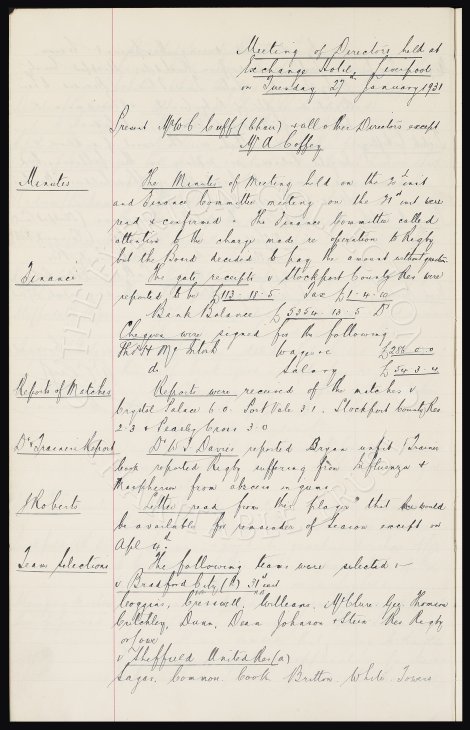 Meeting of Directors held at
Exchange Hotel, Liverpool
on Tuesday 27th January 1931
Present Mr W C Cuff (Chair) & all other Directors except
Mr A Coffey
Minutes
The Minutes of Meeting held on the 20th inst
and Finance Committee meeting on the 21st inst were
read & confirmed. The Finance Committee called
attention to the charge made re operation to Rigby
but the Board decided to pay the amount without question
Finance
The gate receipts v Stockport County Res were
reported to be £113-18-5 Tax £1-4-10
Bank Balance £5354-13-5
Cheques were signed for the following
Thos H McIntosh Wages £286-0-0
do Salary £34-3-4
Reports of Matches
Reports were received of the matches v
Crystal Palace 6.0 Port Vale 3.1, Stockport County Res
2.3 & Peasley Cross 3.0
Dr & Trainers Report
Dr W J Davies reported Bryan unfit. Trainer
Cook reported Rigby suffering from influenza &
Macpherson from abscess in gums
J Roberts
Letter read from this player that he would
be available for remainder of Season except on
Apl 4th
Team Selections
The following teams were selected:-
v Bradford City (h) 31st inst
Coggins, Cresswell, Williams, McClure, Gee, Thomson
Critchley, Dunn, Dean Johnson & Stein Res Rigby
or
v Sheffield United Res (a)
Sagar, Common, Cook Britton White Towers